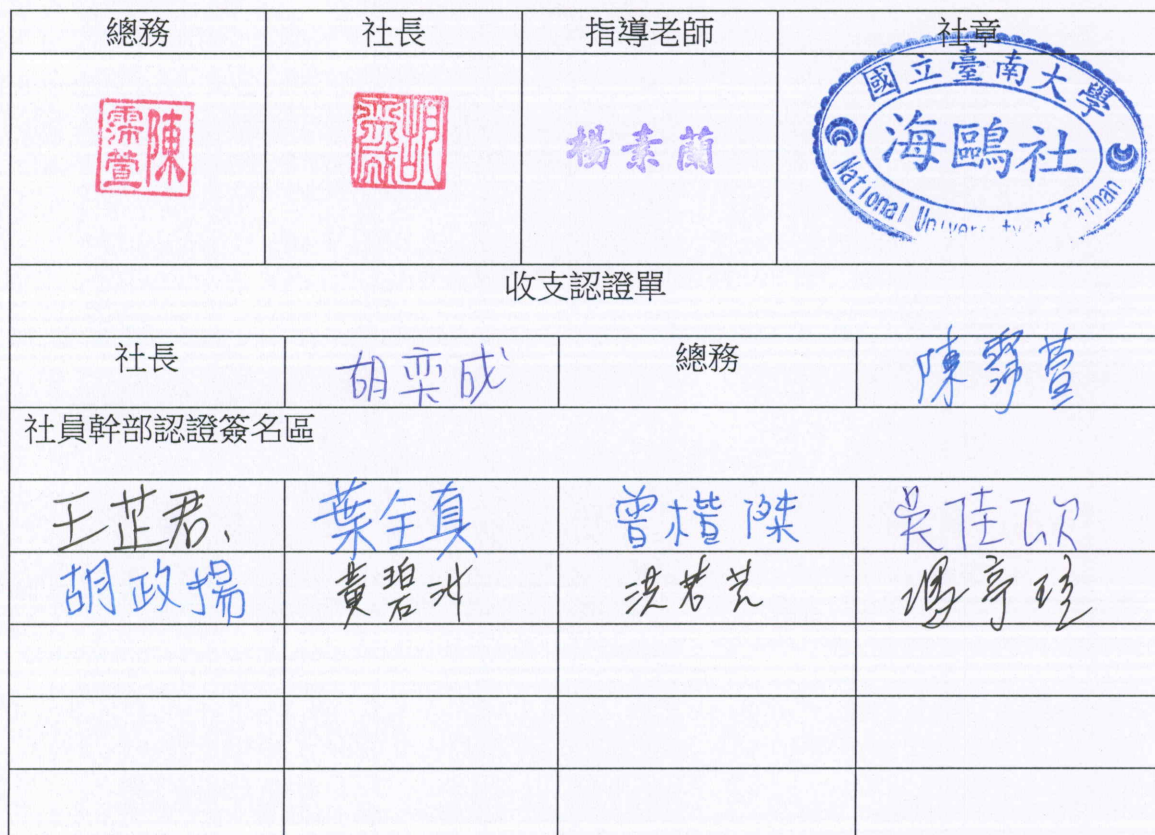 總務 社長 指導老師 社章
陳霈萱 胡奕成 楊素蘭
國立臺南大學
海鷗社
National University of Tainan
收支認證單
社長 胡奕成 總務 陳霈萱
社員幹部認證簽名區
王芷君、 葉全真 曾楷傑 吳佳欣
胡政揚 黃碧 洪若芸 馮亭